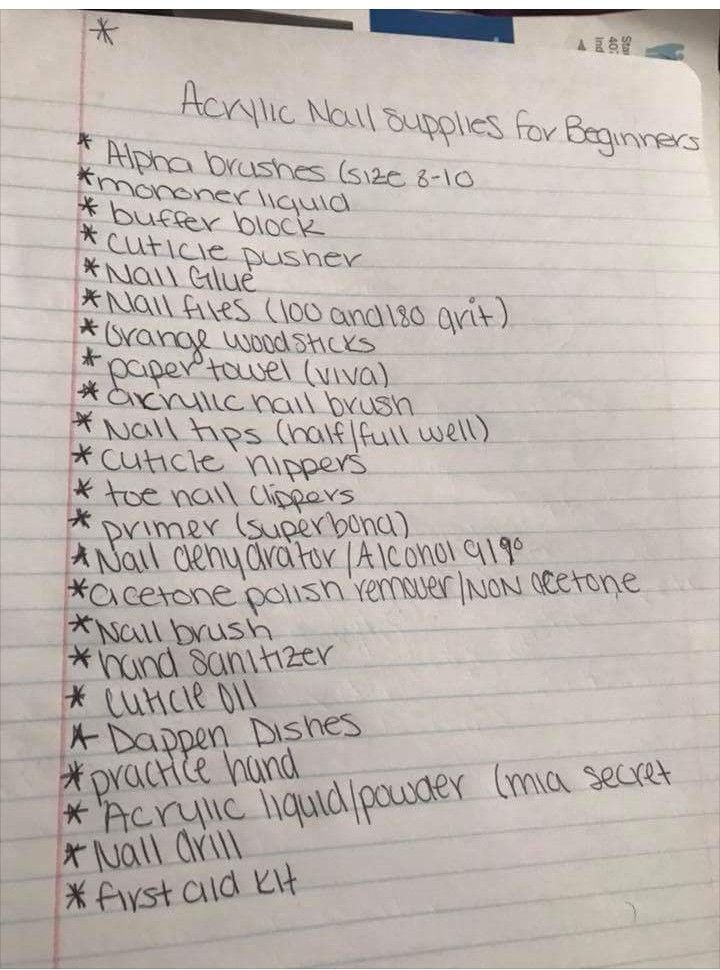 *
Acrylic Nail Supplies for Beginners
* Alpha brushes (size 8-10
* mononer liquid
* buffer block
* cuticle pusher
* Nail Glue
* Nail files (100 and 180 grit)
* Orange woodsticks
* paper towel (viva)
* acrylic nail brush
* Nail tips (half/full well)
* cuticle nippers
* toe nail clippers
* primer (superbond)
* Nail dehydrator/Alcohol 91%
* acetone polish remover/NON acetone
* Nail brush
* hand sanitizer
* cuticle oil
* Dappen Dishes
* practice hand
* Acrylic liquid/powder (mia secret
* Nail drill
* first aid kit